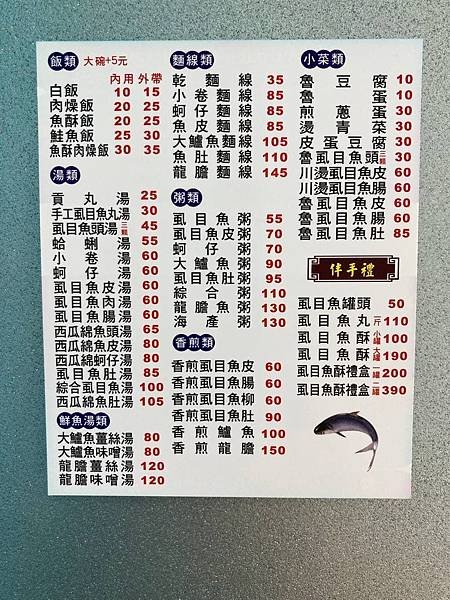 飯類 大碗+5元
內用 外帶
白飯 10 15
肉燥飯 20 25
魚酥飯 20 25
鮭魚飯 25 30
魚酥肉燥飯 30 35
湯類
貢丸湯 25
手工虱目魚丸湯 30
虱目魚頭湯三顆 45
蛤蜊湯 55
小卷湯 55
蚵仔湯 55
虱目魚皮湯 60
虱目魚肉湯 60
虱目魚腸湯 60
西瓜綿魚頭湯 65
西瓜綿魚皮湯 80
西瓜綿蚵仔湯 80
虱目魚肚湯 85
綜合虱目魚湯 100
西瓜綿魚肚湯 105
鮮魚湯類
大鱸魚薑絲湯 80
大鱸魚味噌湯 80
龍膽薑絲湯 120
龍膽味噌湯 120
麵線類
乾麵線 35
小卷麵線 85
蚵仔麵線 85
魚皮麵線 85
大鱸魚麵線 105
魚肚麵線 110
龍膽麵線 145
粥類
虱目魚粥 55
虱目魚皮粥 70
蚵仔粥 70
大鱸魚粥 90
虱目魚肚粥 95
綜合粥 110
龍膽魚粥 130
海產粥 130
香煎類
香煎虱目魚皮 60
香煎虱目魚腸 60
香煎虱目魚柳 60
香煎虱目魚肚 90
香煎鱸魚 100
香煎龍膽 150
小菜類
魯豆腐 10
魯蛋 10
煎蔥蛋 30
燙青菜 30
皮蛋豆腐 30
魯虱目魚頭三顆 30
川燙虱目魚皮 60
川燙虱目魚腸 60
魯虱目魚皮 60
魯虱目魚腸 60
魯虱目魚肚 85
伴手禮
虱目魚罐頭 50
虱目魚丸一斤 110
虱目魚酥小罐 100
虱目魚酥大罐 190
虱目魚酥禮盒一罐 200
虱目魚酥禮盒二罐 390